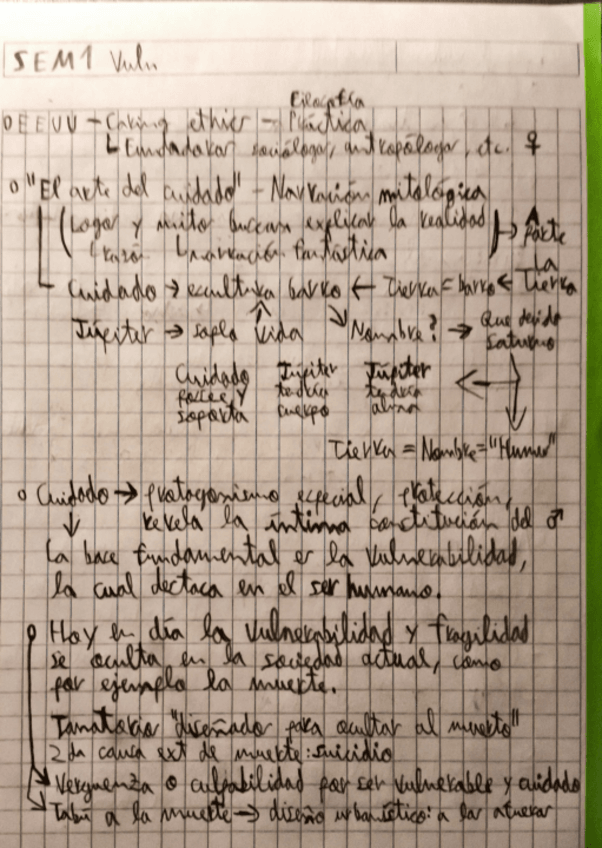 SEM1 Vuln
O EEUU - Caring ethics - Filosofía Práctica
↳ Fundadoras sociólogas, antropólogas, etc. ♀
o "El arte del cuidado" - Narración mitológica
(Logos y mito buscan explicar la realidad) → A parte
↳ razón ↳ narración fantástica
La
Cuidado → escultura barro ← Tierra = barro ← Tierra
Júpiter → sopla vida ↘ Nombre? → Que decida Saturno
Cuidado posee y soporta
Júpiter tendría cuerpo
Júpiter tendría alma
Tierra = Nombre = "Humus"
o Cuidado → protagonismo especial, protección,
revela la íntima constitución del ♂
↓
La base fundamental es la vulnerabilidad,
la cual destaca en el ser humano.
o Hoy en día la vulnerabilidad y fragilidad
se oculta en la sociedad actual, como
por ejemplo la muerte.
Tanatorio "diseñado para ocultar al muerto"
2da causa ext de muerte: suicidio
→ Verguenza o culpabilidad por ser vulnerable y cuidado
→ Tabú a la muerte → diseño urbanístico: a las afueras